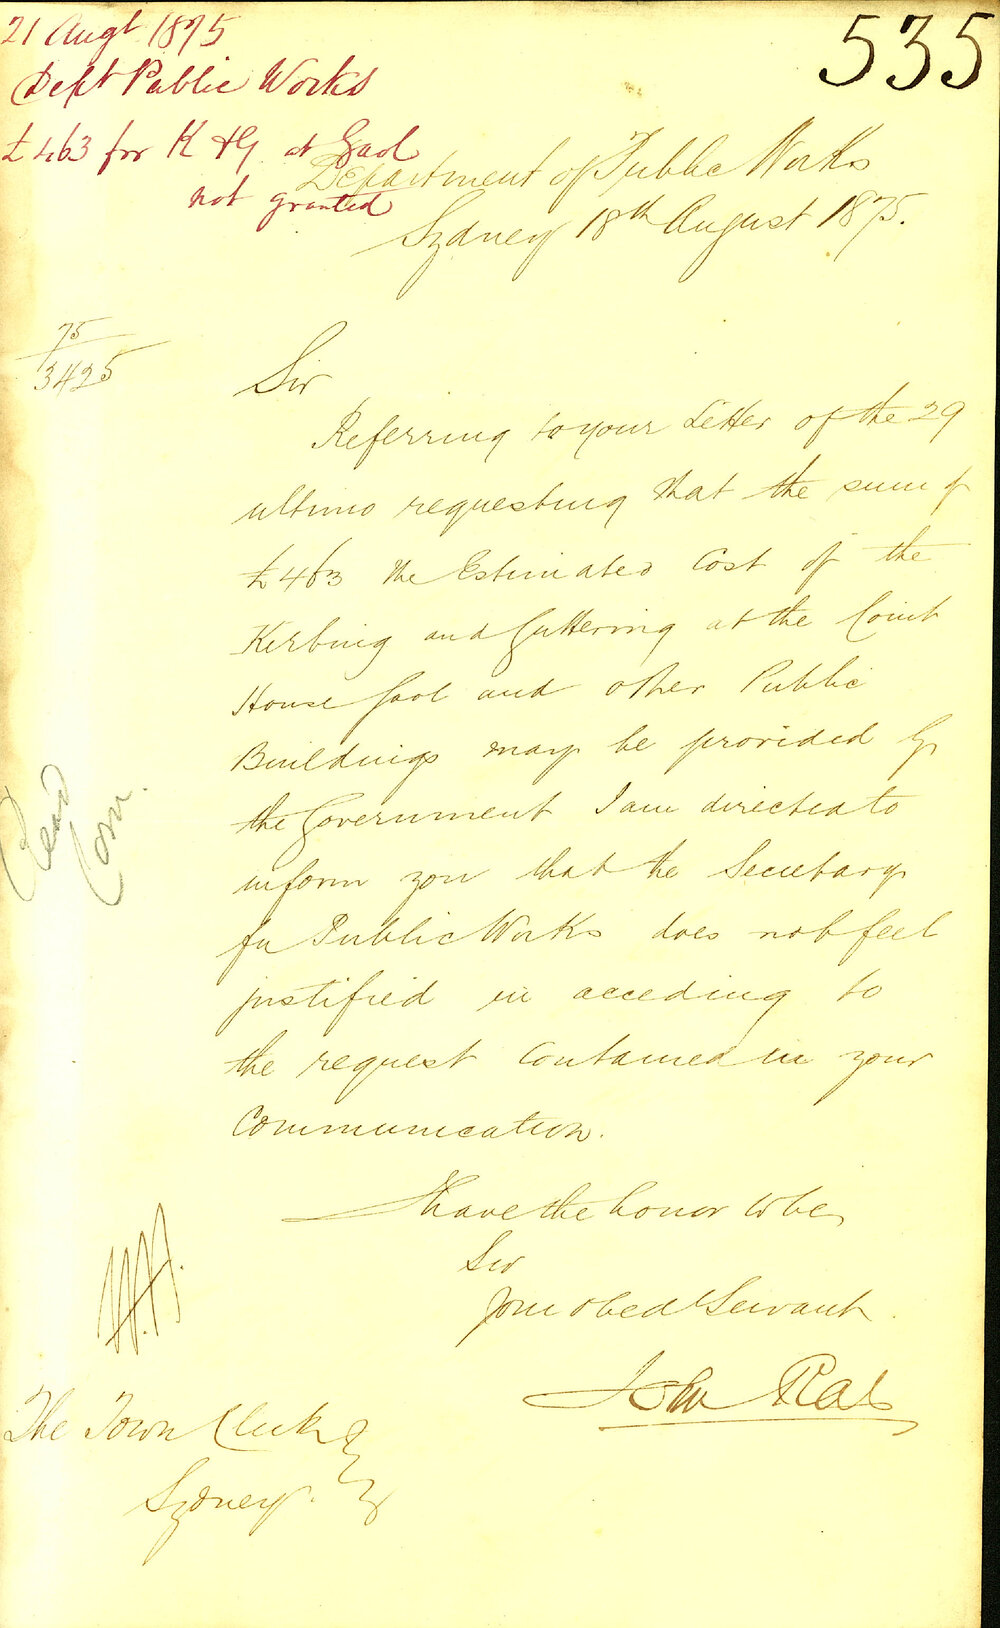 21 Augt 1875
535
Dept Public Works
£463 for K & G. at Gaol
not granted
Department of Public Works
Sydney 18th August 1875.
75
3425
Sir
Referring to your Letter of the 29
ultimo requesting that the sum of
£463 the Estimated Cost of the
Kerbing and Guttering at the Court
House Gaol and other Public
Buildings may be provided by
the Government I am directed to
inform you that the Secretary
for Public Works does not feel
justified in acceding to
the request contained in your
Communication.
Read
Com.
I have the honor to be,
Sir
Your obed Servant
John Rae
The Town Clerk
Sydney.